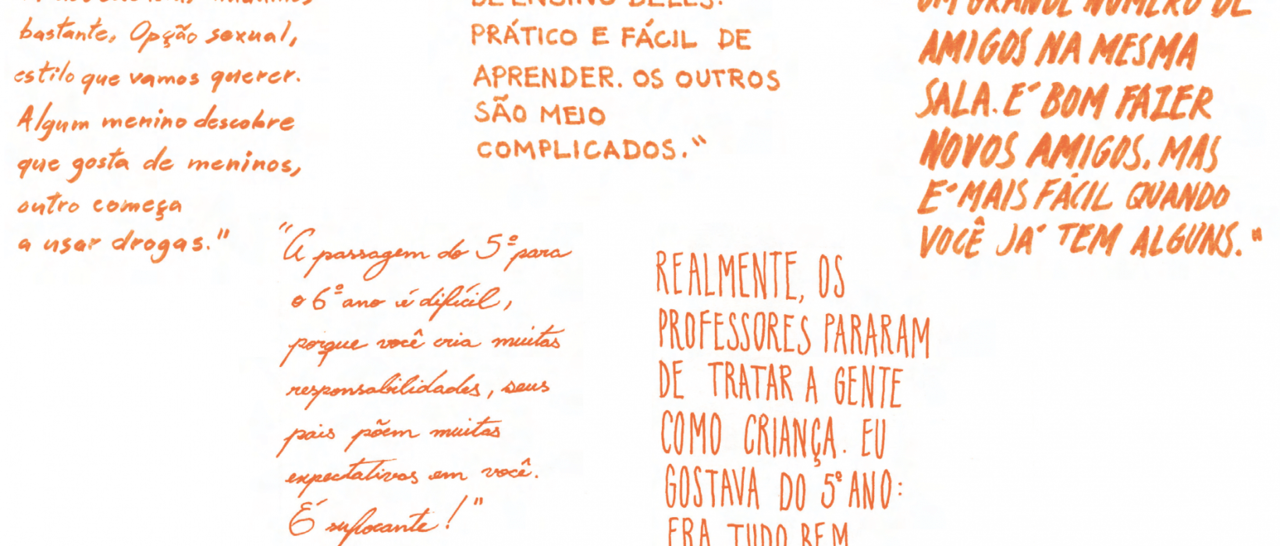 bastante, Opção sexual,
estilo que vamos querer.
Algum menino descobre
que gosta de meninos,
outro começa
a usar drogas."
DE ENSINO DELES.
PRÁTICO E FÁCIL DE
APRENDER. OS OUTROS
SÃO MEIO
COMPLICADOS."
UM GRANDE NÚMERO DE
AMIGOS NA MESMA
SALA. É BOM FAZER
NOVOS AMIGOS, MAS
É MAIS FÁCIL QUANDO
VOCÊ JÁ TEM ALGUNS."
"A passagem do 5º para
o 6º ano é difícil,
porque você cria muitas
responsabilidades, seus
pais põem muitas
expectativas em você.
É sufocante!"
REALMENTE, OS
PROFESSORES PARARAM
DE TRATAR A GENTE
COMO CRIANÇA. EU
GOSTAVA DO 5º ANO:
ERA TUDO BEM